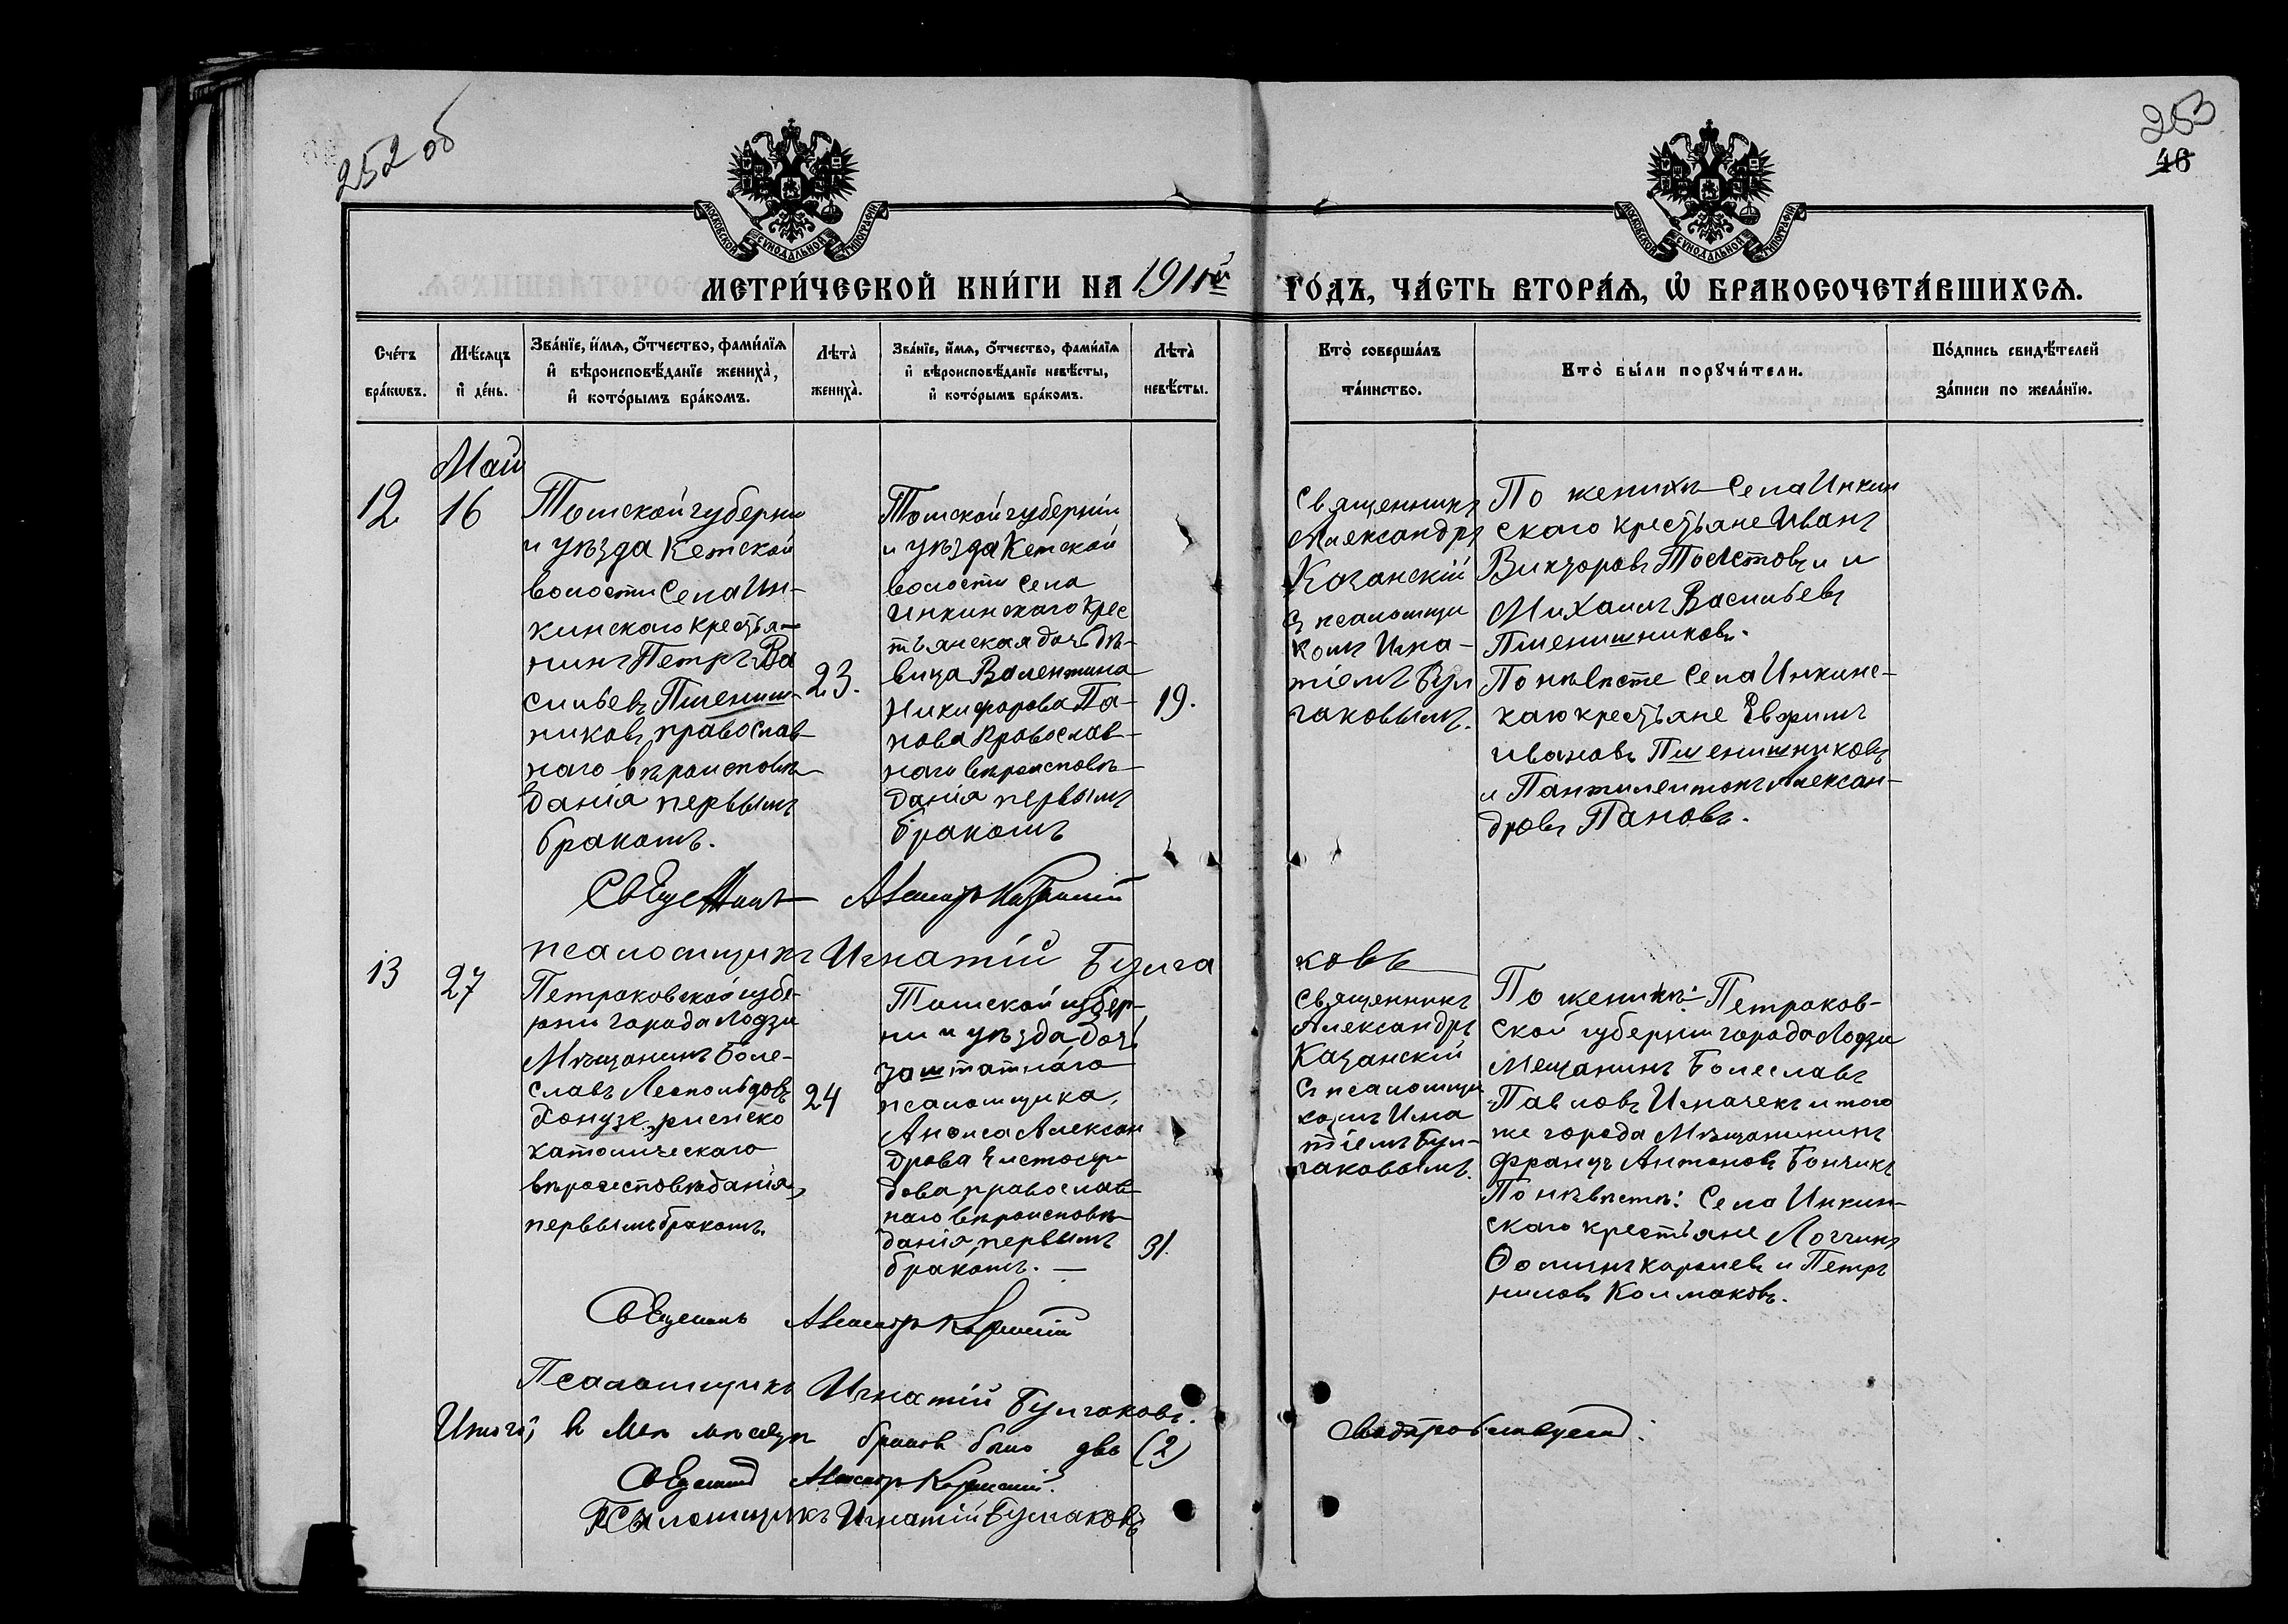 252 об
253
46
МОСКОВСКОЙ СѴНОДАЛЬНОЙ ТИПОГРАФІИ
МОСКОВСКОЙ СѴНОДАЛЬНОЙ ТИПОГРАФІИ
МЕТРИ́ЧЕСКОЙ КНИ́ГИ НА 1911й ГО́ДЪ, ЧА́СТЬ ВТОРА́Ѧ, Ѽ БРАКОСОЧЕТА́ВШИХСѦ.
Сче́тъ
бра́кѡвъ.
Мѣ́сяцъ
и҆ де́нь.
Зва́нїе, и҆́мѧ, ѻ҆́тчество, фами́лїѧ
и҆ вѣроисповѣ́данїе жениха̀,
и҆ кото́рымъ бра́комъ.
Лѣ́та̀
жениха̀.
Зва́нїе, и҆́мѧ, ѻ҆́тчество, фами́лїѧ
и҆ вѣроисповѣ́данїе невѣ́сты,
и҆ кото́рымъ бра́комъ.
Лѣ́та̀
невѣ́сты.
Кто̀ соверша́лъ
та́инство.
Кто̀ бы́ли порꙋчи́тели.
По́дпись свидѣ́телей
за́писи по жела́нїю.
12
Май
16
Томской губерни
и уѣзда Кетской
волости села Ин-
кинского крестья-
нинъ Петръ Ва
сильевъ Пшениш-
никовъ, православ-
наго вѣроисповѣ-
данія первымъ
бракомъ.
23.
Томской губерніи
и уѣзда Кетской
волости села
Инкинскаго крес
тьянская дочь дѣ-
вица Валентина
Никифорова Па-
нова православ-
наго вѣроисповѣ-
данія первымъ
бракомъ
19.
Священникъ
Александръ
Казанскій
съ псаломщи
комъ Игна-
тіемъ Бул
гаковымъ.
По женихѣ села Инкин
скаго крестьяне Иванъ
Викторовъ Толстовъ и
Михаилъ Васильевъ
Пшенишниковъ.
По невѣсте села Инкинс-
каго крестьяне Евфимъ
Ивановъ Пшенишниковъ
и Пантилеимонъ Алексан-
дровъ Пановъ.
Священникъ Александръ Казанскій
псаломщикъ Игнатій Булга
ковъ
13
27
Петроковской губе-
рни города Лодзи
Мѣщанинъ Боле-
славъ Леопольдовъ
римско
католическаго
вѣроисповѣданія,
первымъ бракомъ.
24
Томской губер-
ни и уѣзда дочь
заштатнаго
псаломщика,
Анфиса Алексан
дрова Чистосер
дова православ
наго вѣроисповѣ-
данія, первымъ
бракомъ. —
31.
Священникъ
Александръ
Казанскій
съ псаломщи
комъ Игна
тіемъ Бул-
гаковымъ.
По женихѣ: Петроков-
ской губерніи города Лодзи
Мещанинъ Болеславъ
Павловъ Игначекъ и того
же города Мѣщанининъ
Францъ Антоновъ Бончикъ
По невѣстѣ: села Инкин-
скаго крестьяне Логгинъ
Ѳоминъ Карпиевъ и Петръ
Ниловъ Колмаковъ.
Священникъ Александръ Казанскій
Псаломщикъ Игнатій Булгаковъ.
Итого, въ Маѣ мѣсяцѣ браковъ было два (2)
Священникъ Александръ Казанскій.
Псаломщикъ Игнатій Булгаковъ